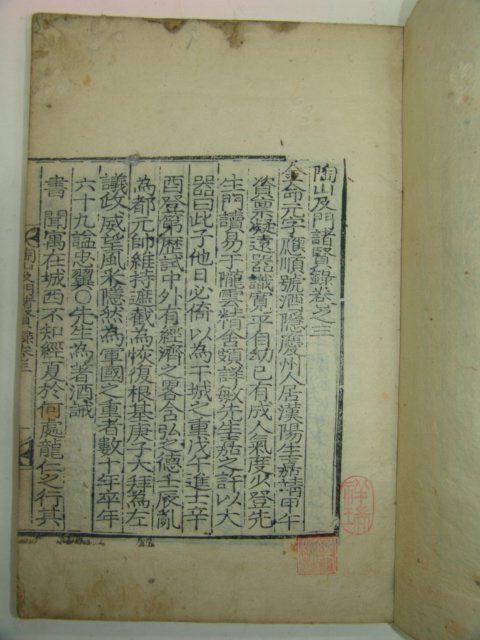 陶山及門諸賢錄卷之三
金命元字應順號酒隱慶州人居漢陽生嘉靖甲午
資稟凝遠器識寬平自幼已有成人氣度少登先
生門讀易于隴雲精舍頗詳敏先生嘉之許以大
器曰此子他日必倚以爲干城之重戊午進士辛
酉登第歷試中外有經濟之畧含弘之德壬辰亂
爲都元帥維持遮截爲恢復根基庚子大拜爲左
議政威望風采隱然爲軍國之重者數十年卒年
六十九諡忠翼〇先生爲著酒誡
書 聞寓在城西不知經夏於何處龍仁之行其